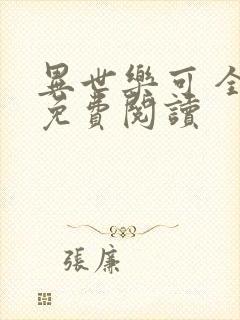 異世樂可 全
免費閱讀
張廉